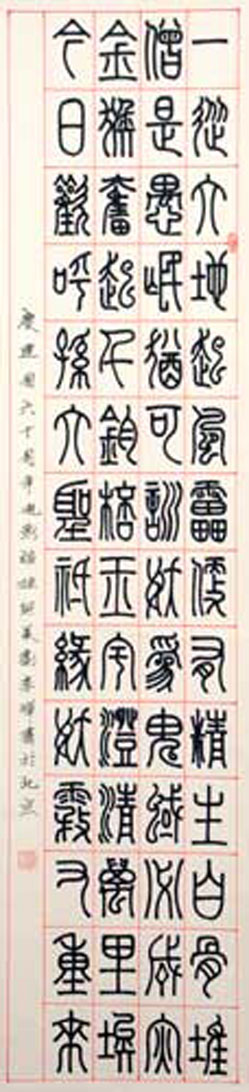 一從大地起風雷便有精生白骨堆
僧是愚氓猶可訓妖爲鬼蜮必成災
金猴奮起千鈞棒玉宇澄清萬里埃
今日歡呼孫大聖祇緣妖霧又重來
慶建國六十周年書於北京